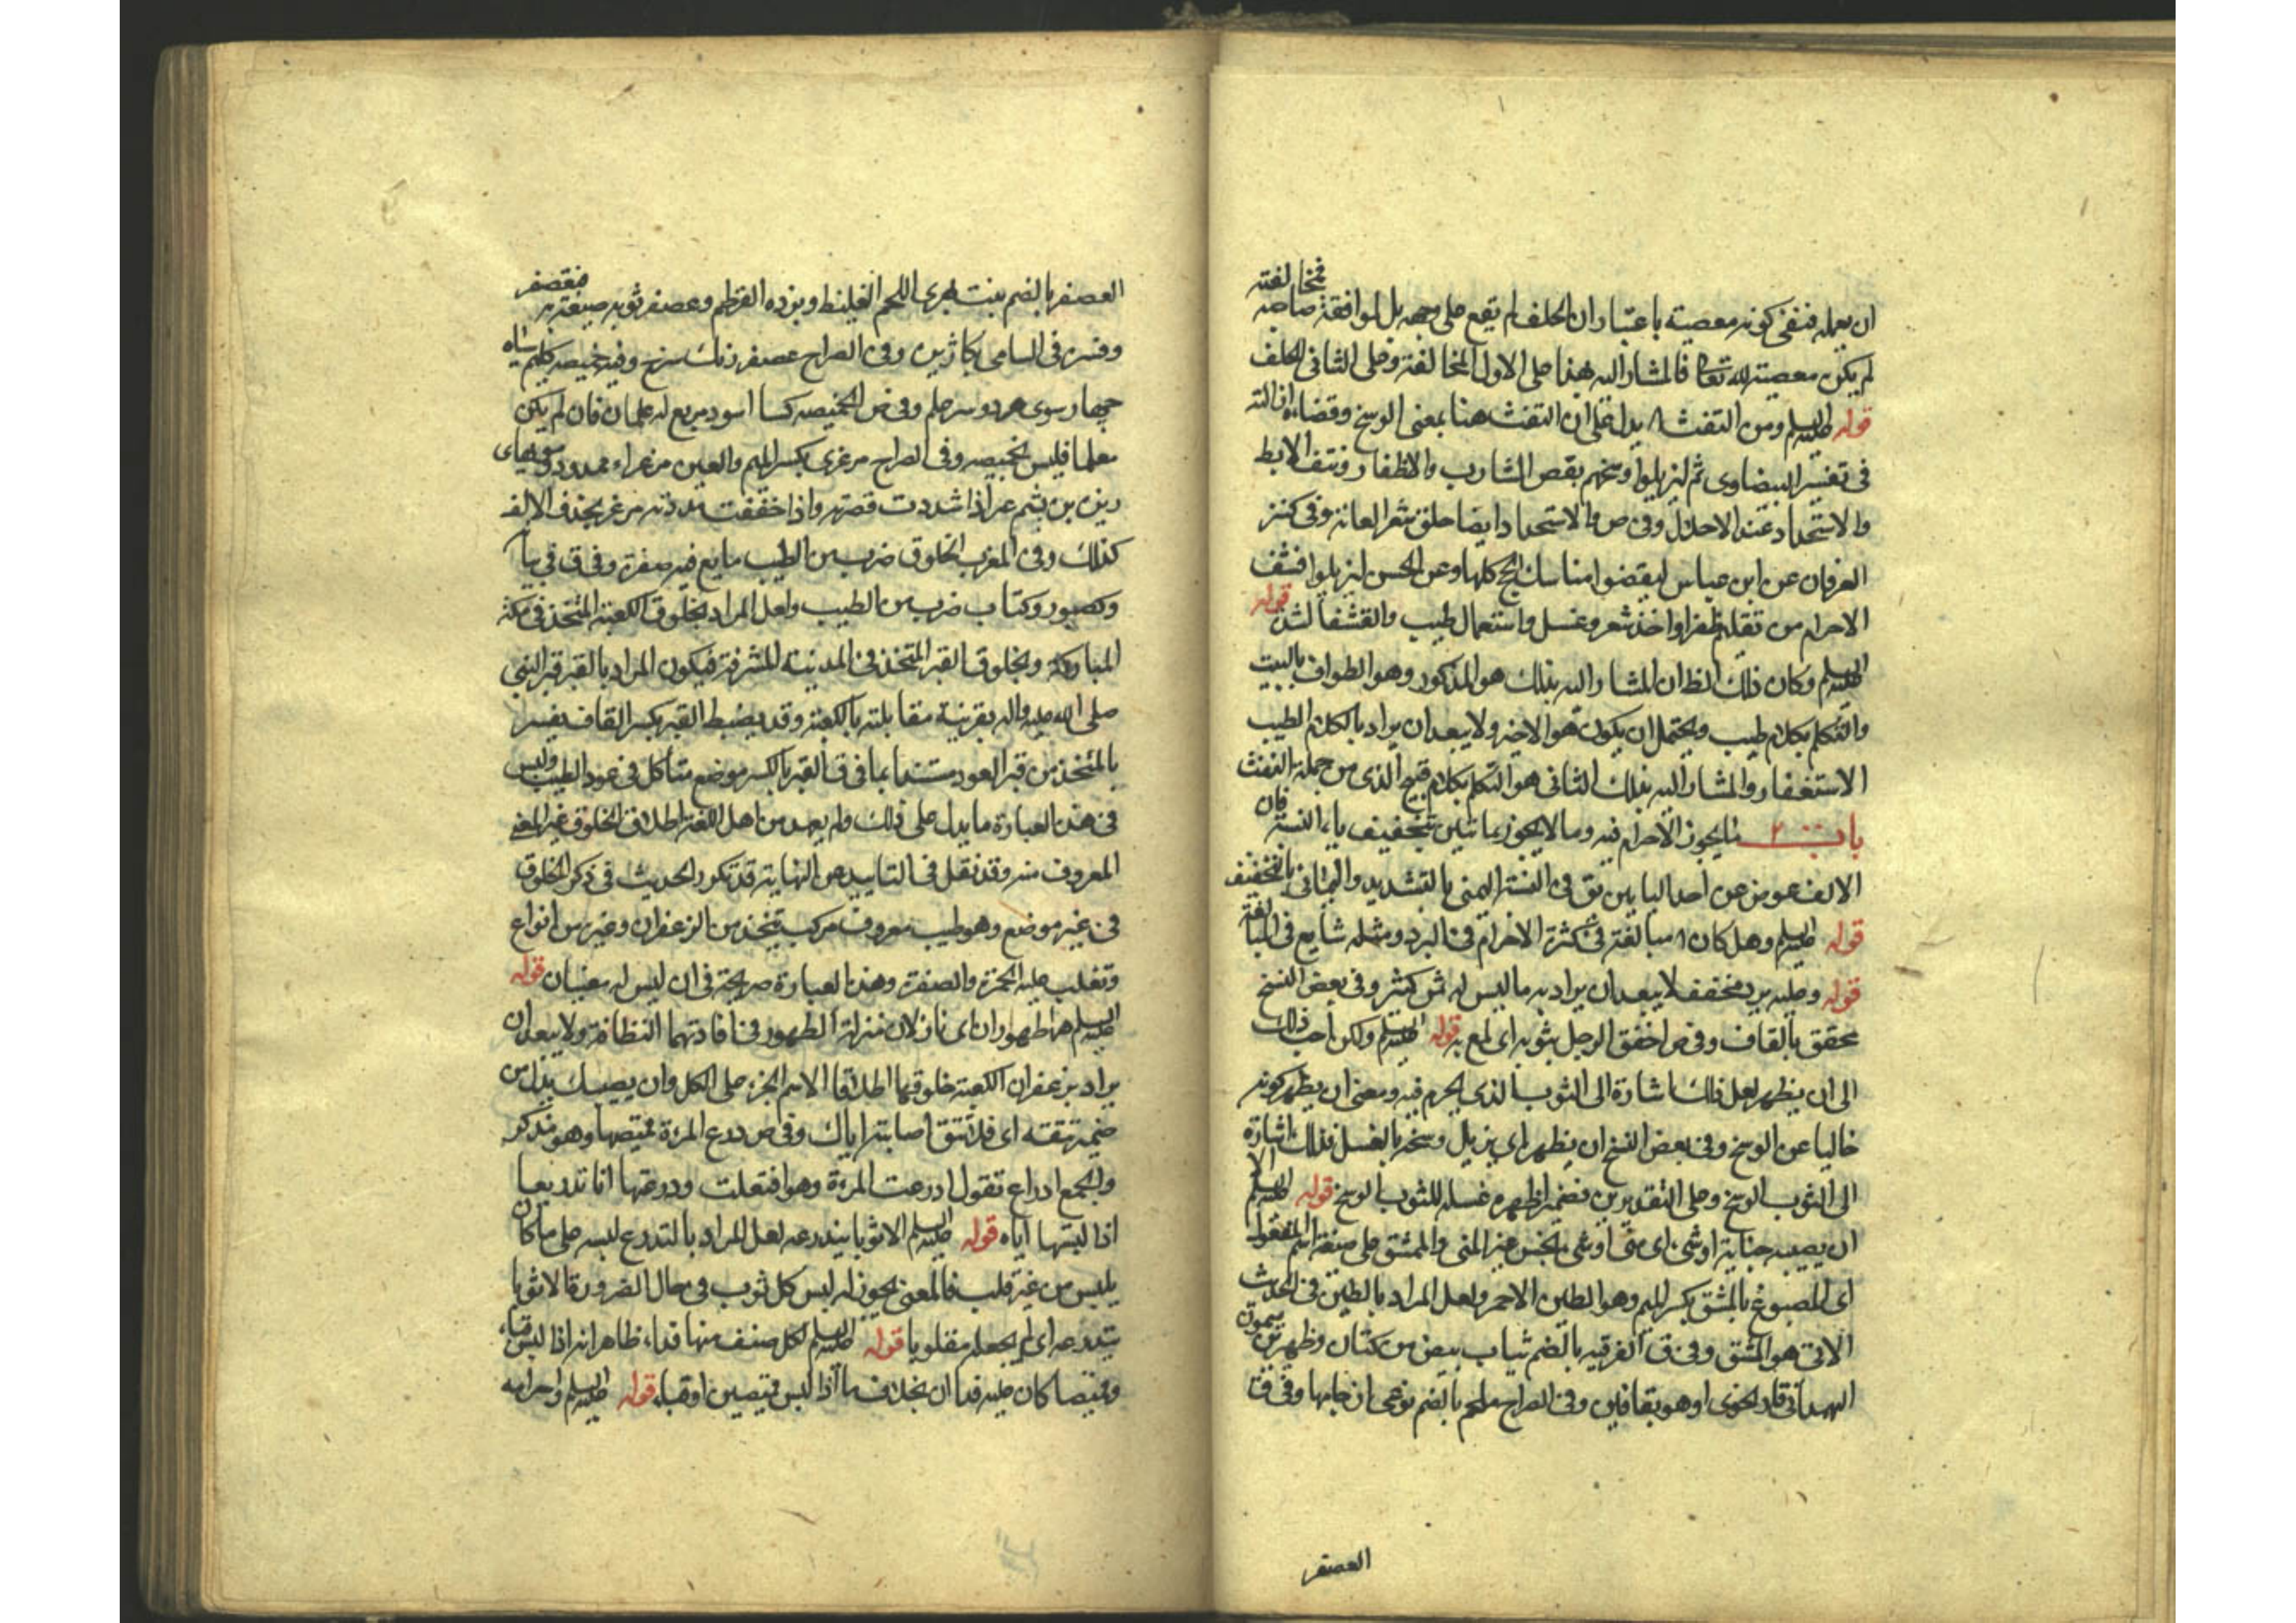 ان يعمله فنفى كونه معصية باعتبار ان الحلف لم يقع على وجهه بل لموافقة صاحبه فمخالفته
لم يكن معصية لله تعالى فالمشار اليه بهذا على الاول المخالفة وعلى الثانى الحلف
قوله عليه السلم ومن التفث ا يدل على ان التفث هنا بمعنى الوسخ وقضاءه ازالته
فى تفسير البيضاوى ثم ليزيلوا وسخهم بقص الشارب والاظفار ونتف الابط
والاستحداد عند الاحلال وفى ص والاستحداد ايضا حلق شعر العانة وفى كنز
العرفان عن ابن عباس ليقضوا مناسك الحج كلها وعن الحسن ليزيلوا قشف
الاحرام من تقليم ظفر او اخذ شعر وغسل واستعمال طيب والقشف الشدة قوله
عليه السلم وكان ذلك الظ ان المشار اليه بذلك هو المذكور وهو الطواف بالبيت
والتكلم بكلام طيب ويحتمل ان يكون هو الاخير ولا يبعد ان يراد بالكلام الطيب
الاستغفار والمشار اليه بذلك الثانى هو التكلم بكلام قبيح الذى من جملة التفث
باب ما يجوز الاحرام فيه وما لا يجوز يمانيين بتخفيف ياء النسبة فان
الالف عوض عن احد اليايين يق فى النسبة اليمنى بالتشديد واليمانى بالتخفيف
قوله عليه السلم وهل كان ا مبالغة فى كثرة الاحرام فى البرد ومثله شايع فى المبالغة
قوله وعليه برد مخفف لا يبعد ان يراد به ما ليس له ثمن كثير وفى بعض النسخ
محقق بالقاف وفى ص اخفق الرجل بثوبه اى لمع به قوله عليه السلم ولكن احب ذلك
الى ان يطهر لعل ذلك اشارة الى الثوب الذى يحرم فيه ومعنى ان يطهر كونه
خاليا عن الوسخ وفى بعض النسخ ان يطهر اى يزيل وسخه بالغسل فذلك اشارة
الى الثوب الوسخ وعلى التقديرين فضمير اطهره غسله للثوب الوسخ قوله عليه السلم الا
ان يصيبه جنابة او شىء اى منى او شىء نجس غير المنى والممشق على صيغة اسم المفعول
اى المصبوغ بالمشق بكسر الميم وهو الطين الاحمر ولعل المراد بالطين فى الحديث
الاتى هو المشق وفى ق الفرقبيه بالضم ثياب بيض من كتان
وهو بقافين وفى الصراح ملحم بالضم نوعى از جامها وفى ق
العصفر
العصفر بالضم نبت يهرى اللحم الغليظ وبزره القرطم وعصفر ثوبه صبغه به فتعصفر
وفسره فى السامى بكاژيره وفى الصراح عصفر رنك سرخ وفيه خميصه كليم سياه
چهار سوى هر دو سر علم وفى ص الخميصه كساء اسود مربع له علمان فان لم يكن
معلما فليس بخميصه وفى الصراح مرعزى بكسر الميم والعين مرعزاء ممدود موىهاى
ريزه بن پشم عز اذا شددت قصرته واذا خففت مددته مرعز بحذف الالف
كذلك وفى المغرب الخلوق ضرب من الطيب مايع فيه صفرة وفى ق فى
وكصبور وكتاب ضرب من الطيب ولعل المراد بخلوق الكعبة المتخذ فى مكة
المباركة وبخلوق القبر المتخذ فى المدينة المشرفة فيكون المراد بالقبر قبر النبى
صلى الله عليه واله بقرينة مقابلته بالكعبة وقد يضبط القبر بكسر القاف يفسر
بالمتخذ من قبر العود مستندا بما فى ق القبر بالكسر موضع متأكل فى عود الطيب وليس
فى هذه العبارة ما يدل على ذلك ولم يعهد من اهل اللغة اطلاق الخلوق غير المعنى
المعروف منه وقد نقل فى التاييد عن النهاية قد تكرر الحديث فى ذكر الخلوق
فى غير موضع وهو طيب معروف مركب يتخذ من الزعفران وغيره من انواع
وتغلب عليه الحمرة والصفرة وهذه العبارة صريحة فى ان ليس له معنيان قوله
عليه السلم هما طهوران اى نازلان منزلة الطهور فى افادتهما النظافة ولا يبعد ان
يراد بزعفران الكعبة خلوقها اطلاقا لاسم الجزء على الكل وان يصيبك بدل من
ضمير تتقه اى فلا تتق اصابته اياك وفى ص درع المرءة قميصها وهو مذكر
والجمع ادراع تقول ادرعت المرءة وهو افتعلت ودرعتها انا تدريعا
اذا لبستها اياه قوله عليه السلم الا ثوبا يتدرعه لعل المراد بالتدرع لبسه على ما كان
يلبس من غير قلب فالمعنى يجوز له لبس كل ثوب فى حال الضرورة الا ثوبا
يتدرعه اى لم يجعله مقلوبا قوله عليه السلم لكل صنف منها فداء ظاهر انه اذا لبس قباء
وقميصا كان عليه فداان بخلاف ما اذا لبس قميصين او قباء قوله عليه السلم واحرامه